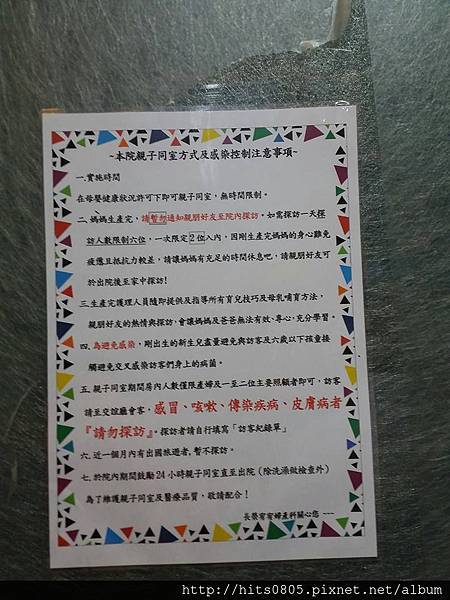 ~本院親子同室方式及感染控制注意事項~
一.實施時間
在母嬰健康狀況許可下即可親子同室，無時間限制。
二、媽媽生產完，請暫勿通知親朋好友至院內探訪。如需探訪一天探
訪人數限制六位，一次限定2位入內，因剛生產完媽媽的身心難免
疲憊且抵抗力較差，請讓媽媽有充足的時間休息吧，請親朋好友可
於出院後至家中探訪!
三.生產完護理人員隨即提供及指導所有育兒技巧及母乳哺育方法，
親朋好友的熱情與探訪，會讓媽媽及爸爸無法有效、專心，充分學習。
四.為避免感染，剛出生的新生兒盡量避免與訪客及六歲以下孩童接
觸避免交叉感染訪客們身上的病菌。
五.親子同室期間房內人數僅限產婦及一至二位主要照顧者即可，訪客
請至交誼廳會客，感冒、咳嗽、傳染疾病、皮膚病者
『請勿探訪』。探訪者請自行填寫「訪客紀錄單」
六、近一個月內有出國旅遊者，暫不探訪。
七.於院內期間鼓勵24小時親子同室直至出院（除洗澡做檢查外）
為了維護親子同室及醫療品質，敬請配合！
長榮宥宥婦產科關心您 ~~~
http://hits0805.pixnet.net/album